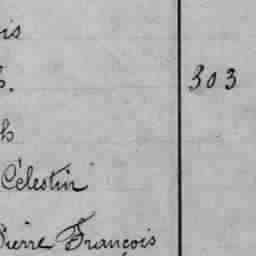 is
303
h
Célestin
Pierre François